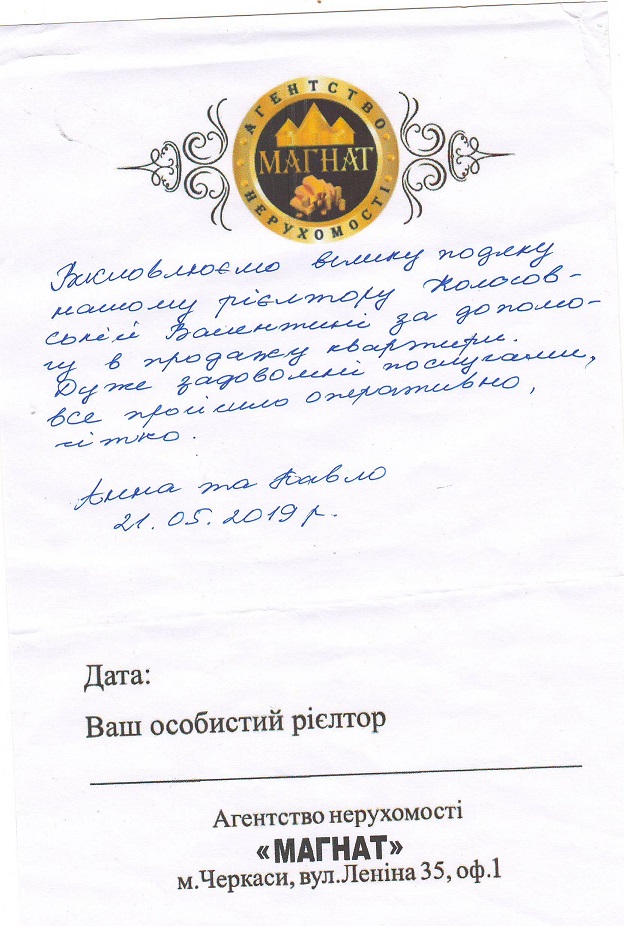 АГЕНТСТВО
МАГНАТ
НЕРУХОМОСТІ
Висловлюємо велику подяку
нашому рієлтору Колосов-
ській Валентині за допомо-
гу в продажу квартири.
Дуже задоволені послугами,
все пройшло оперативно,
чітко.
Анна та Павло
21.05.2019 р.
Дата:
Ваш особистий рієлтор
Агентство нерухомості
«МАГНАТ»
м.Черкаси, вул.Леніна 35, оф.1